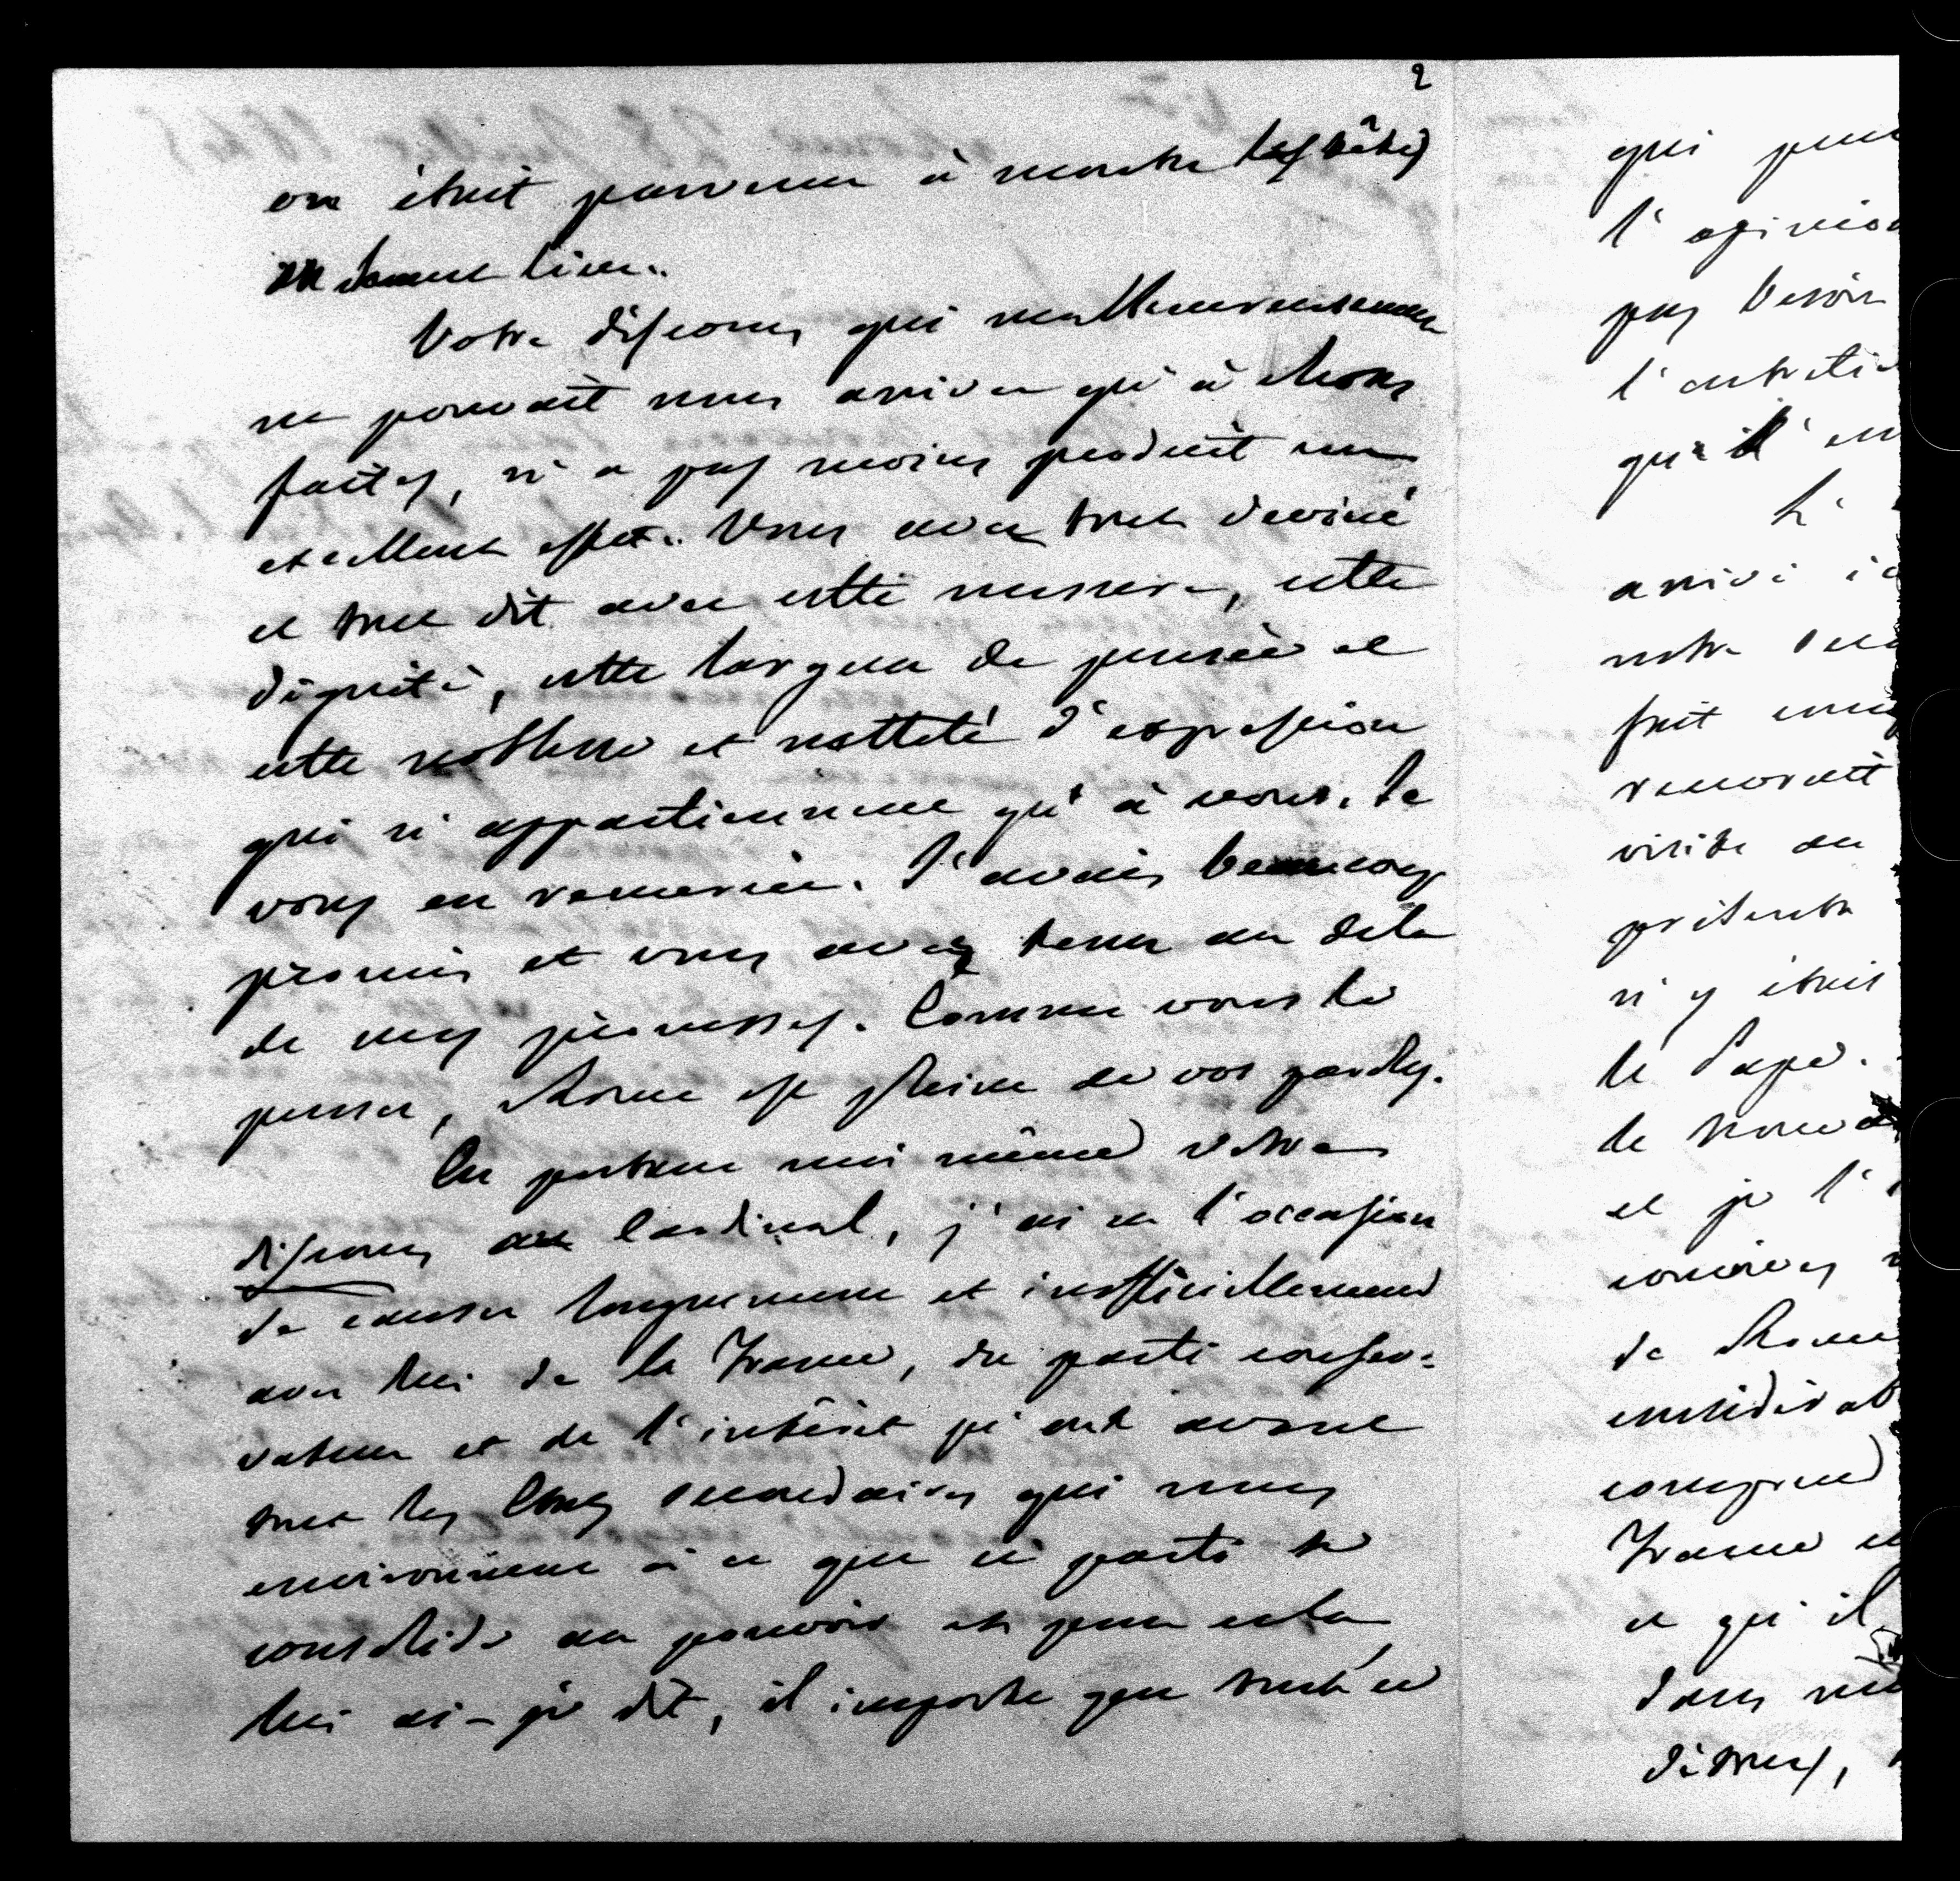 2
on était parvenu à monter les têtes
en

Votre discours qui malheureusement
ne pouvait nous arriver qu'à choses
faites, n'a pas moins produit un
excellent effet. Vous avez tout deviné
et tout dit avec cette mesure, cette
dignité, cette largeur de pensée et
cette noblesse et netteté d'expression
qui n'appartiennent qu'à vous. Je
vous en remercie. J'avais beaucoup
promis et vous avez tenu au delà
de mes promesses. Comme vous le
pensez, Rome est pleine de vos paroles.
En portant moi même votre
discours au Cardinal, j'ai eu l'occasion
de causer longuement et inofficiellement
avec lui de la France, du parti conser-
vateur et de l'intérêt qu'ont surtout
tous les États secondaires qui nous
environnent à ce que ce parti se
consolide au pouvoir et pour cela,
lui ai-je dit, il importe que tout ce
qui
l'opinion
pas besoin
l'
qu'il
L'
arrivé
notre
fait
visite au
n'y était
le Pape.
de
et je l'
de Rome
France
ce qu'il
dans